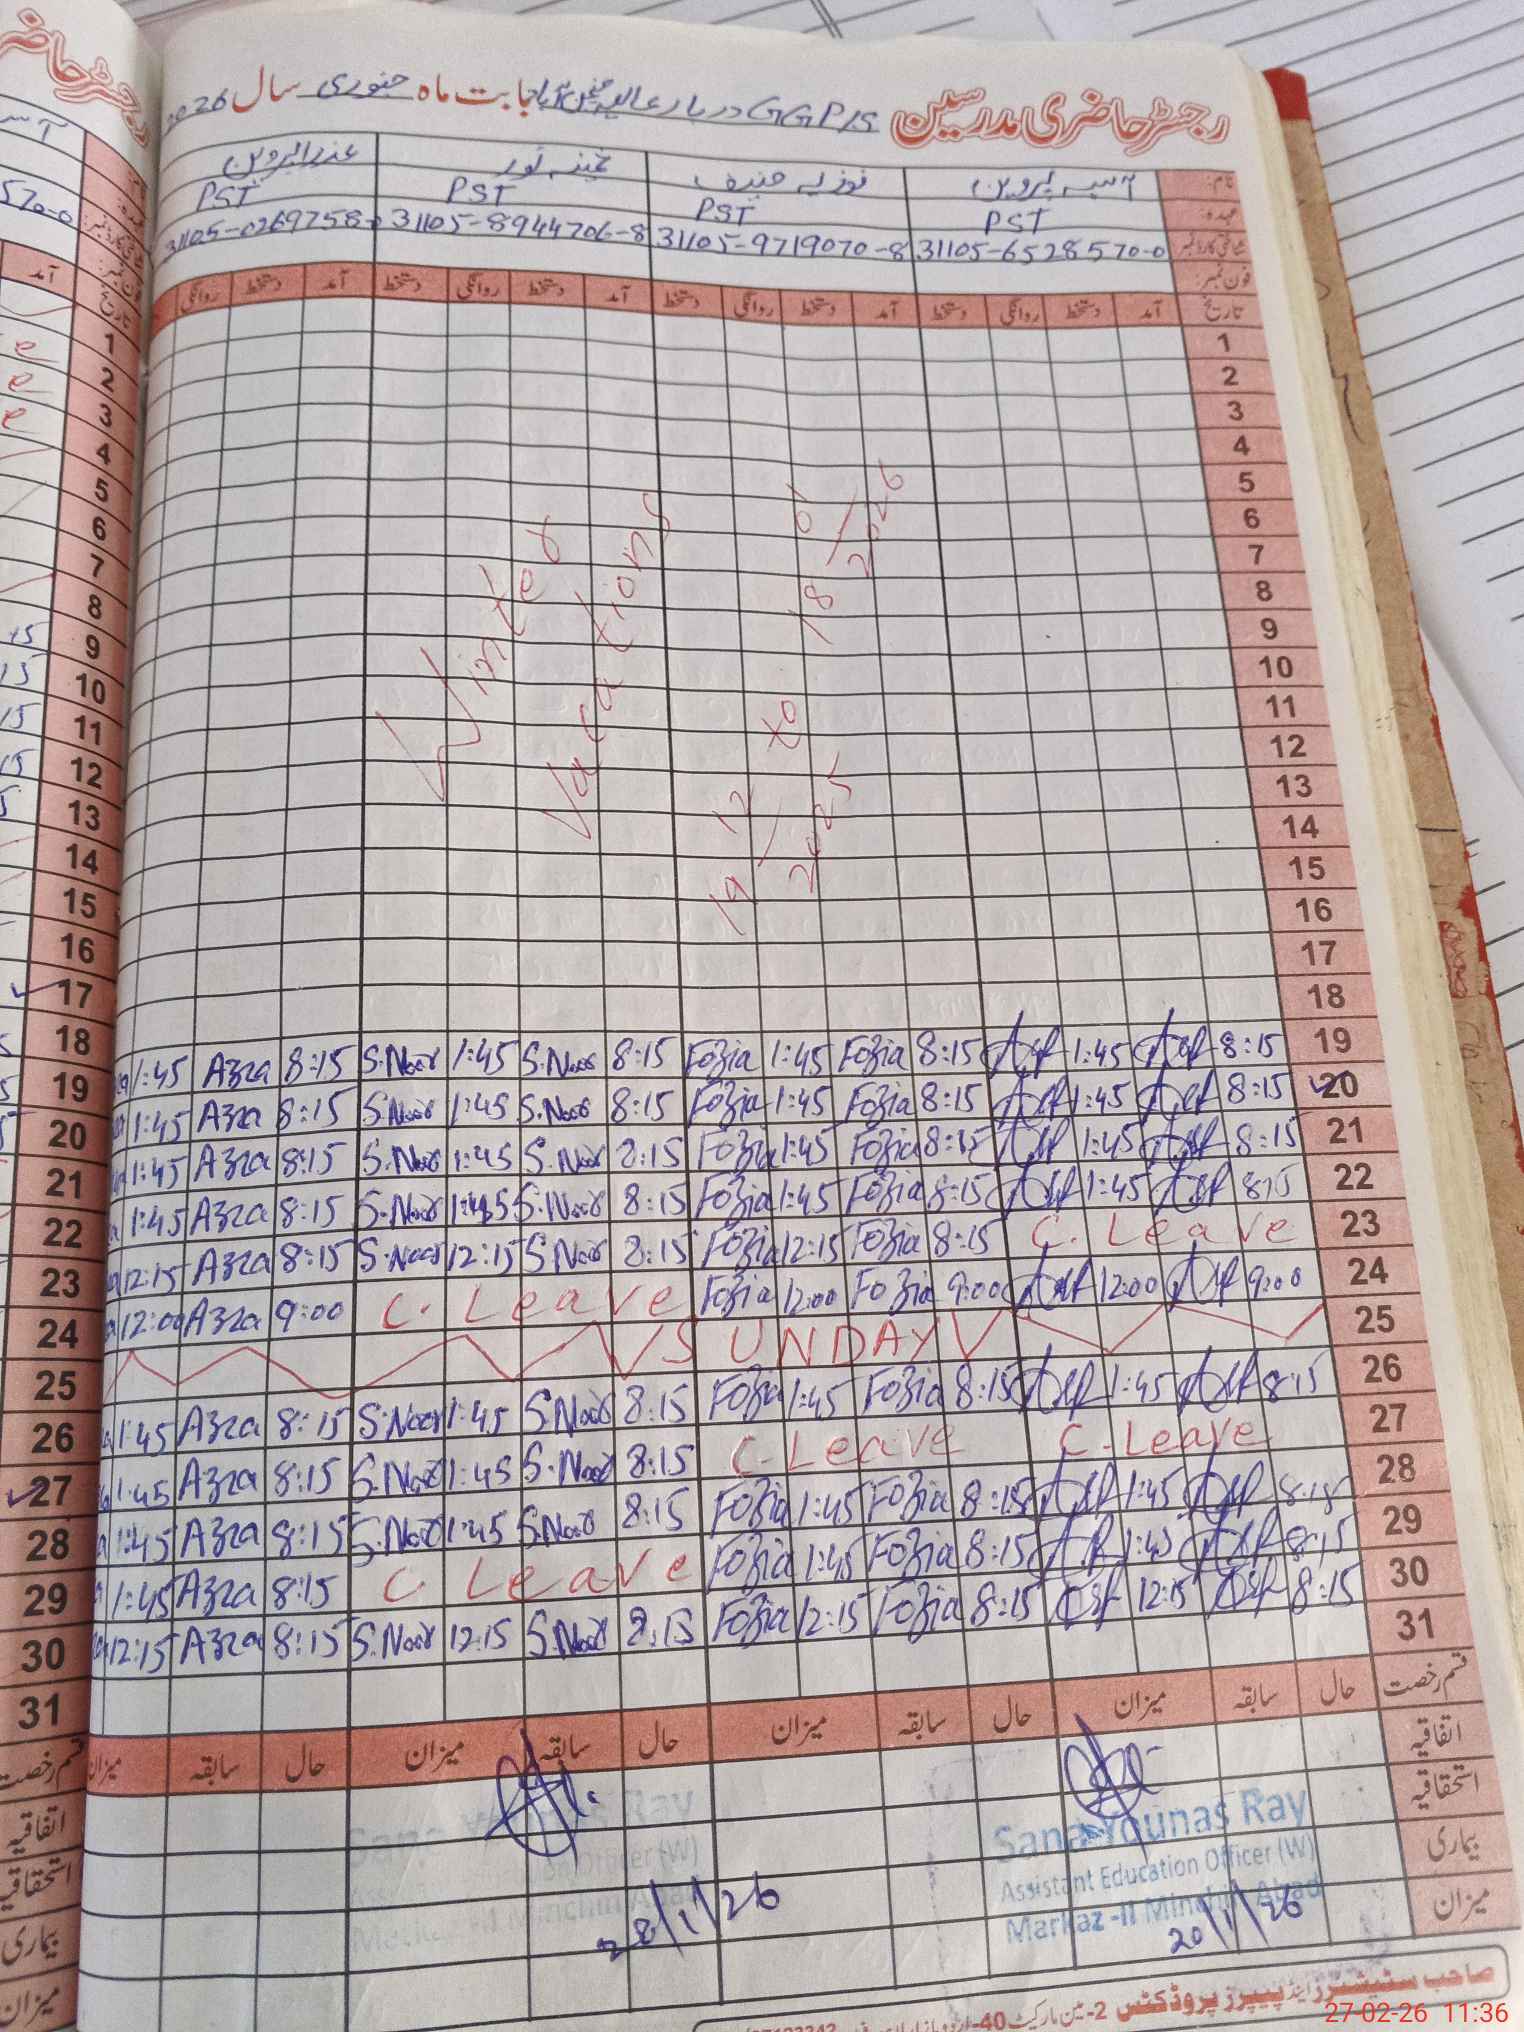 رجسٹر حاضری مدرسین GGP/S دربار عالیہ بابت ماہ جنوری سال 2026
نام: آسیہ پروین فوزیہ حنیف ثمینہ نور عذرا پروین
عہدہ: PST PST PST PST
شناختی کارڈ نمبر: 31105-6528570-0 31105-9719070-8 31105-8944706-8 31105-0269758-
فون نمبر:
تاریخ آمد دستخط روانگی دستخط آمد دستخط روانگی دستخط آمد دستخط روانگی دستخط آمد دستخط روانگی
1
2
3
4
5
6
7
8
9
10
11
12
13
14
15
16
17
18
Winter
Vacations
19-12-2025 to 18-01-2026
1:45 Azra 8:15 S.Noor 1:45 S.Noor 8:15 Fozia 1:45 Fozia 8:15 1:45 8:15 19
1:45 Azra 8:15 S.Noor 1:45 S.Noor 8:15 Fozia 1:45 Fozia 8:15 1:45 8:15 20
1:45 Azra 8:15 S.Noor 1:45 S.Noor 8:15 Fozia 1:45 Fozia 8:15 1:45 8:15 21
1:45 Azra 8:15 S.Noor 1:45 S.Noor 8:15 Fozia 1:45 Fozia 8:15 1:45 8:15 22
12:15 Azra 8:15 S.Noor 12:15 S.Noor 8:15 Fozia 12:15 Fozia 8:15 C. Leave 23
12:00 Azra 9:00 C. Leave Fozia 12:00 Fozia 9:00 12:00 9:00 24
SUNDAY 25
1:45 Azra 8:15 S.Noor 1:45 S.Noor 8:15 Fozia 1:45 Fozia 8:15 1:45 8:15 26
1:45 Azra 8:15 S.Noor 1:45 S.Noor 8:15 C. Leave C. Leave 27
1:45 Azra 8:15 S.Noor 1:45 S.Noor 8:15 Fozia 1:45 Fozia 8:15 1:45 8:15 28
1:45 Azra 8:15 C. Leave Fozia 1:45 Fozia 8:15 1:45 8:15 29
12:15 Azra 8:15 S.Noor 12:15 S.Noor 8:15 Fozia 12:15 Fozia 8:15 12:15 8:15 30
31
قسم رخصت حال سابقہ میزان حال سابقہ میزان حال سابقہ میزان حال سابقہ میزان
اتفاقیہ
استحقاقیہ
بیماری
میزان
Sana Younas Ray
Assistant Education Officer (W)
Markaz -II Minchin Abad
20/1/26
28/1/26
صاحب سٹیشنرز اینڈ پیپرز پروڈکٹس 2-مین مارکیٹ 40-اردو بازار
27-02-26 11:36